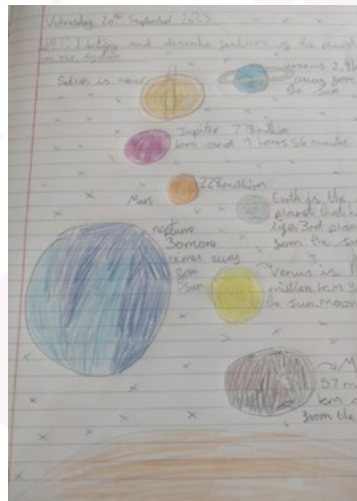 Wednesday 20th September 2023
and describe features of the planets
in our system
Uranus 2.9
away from
the sun
Saturn is near
Jupiter 778 million
km and 9 hours 56 minutes
228 million
Mars
Earth is the
planet that
life 3rd plan
from the su
neptune
30 more
times away
from
sun
Venus is
million km
the sun. moon
M
57 m
km
from the